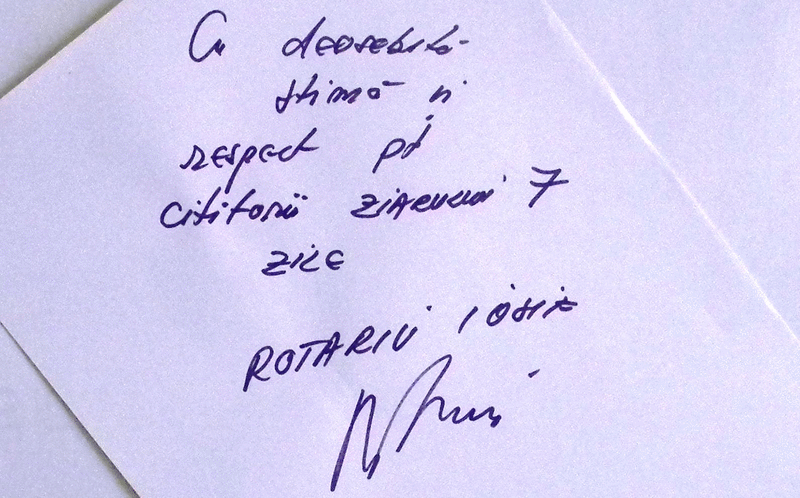 Cu deosebită
stimă și
respect pt
cititorii ziarului 7
zile
ROTARIU IOSIF